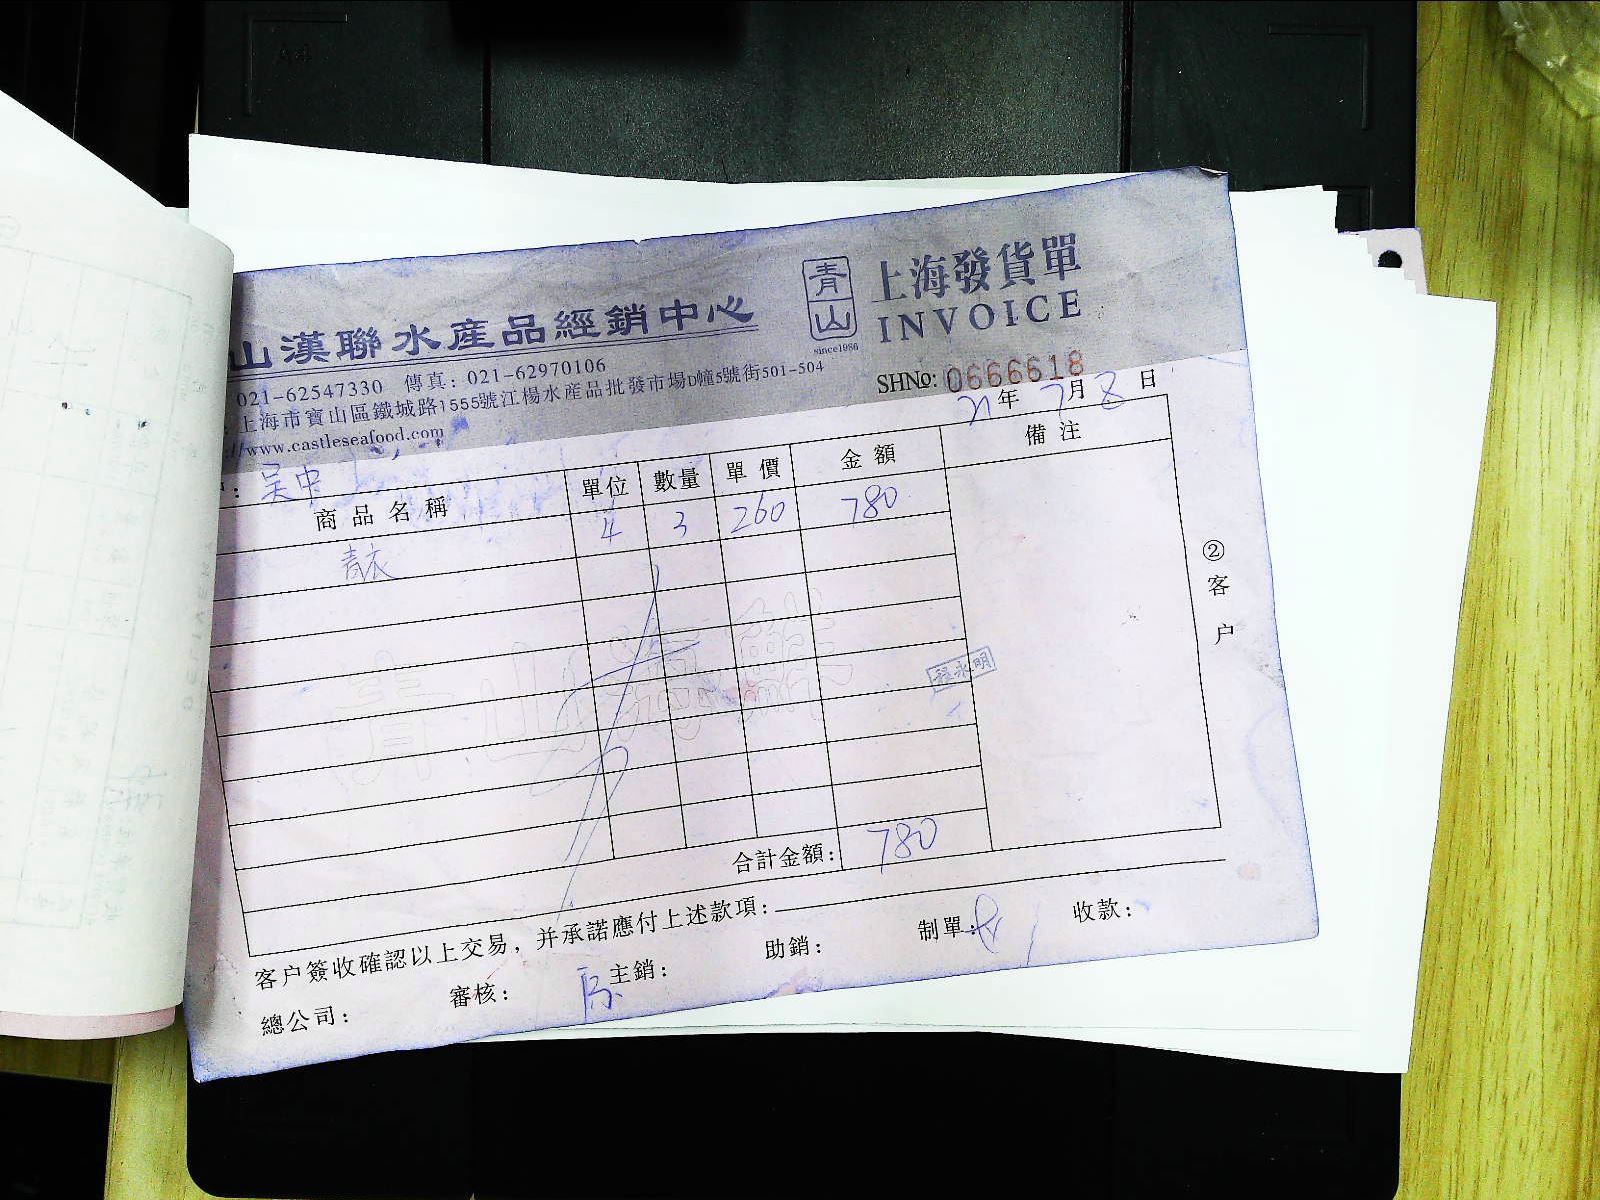 山漢聯水產品經銷中心
青山
since1986
上海發貨單
INVOICE
021-62547330 傳真: 021-62970106
上海市寶山區鐵城路1555號江楊水產品批發市場D幢5號街501-504
//www.castleseafood.com
SHNo: 0666618
21年 7月 8日
: 吴中
商品名稱 單位 數量 單價 金額 備注
青衣 4 3 260 780
青山海鮮
程永明
②客户
合計金額: 780
客户簽收確認以上交易，并承諾應付上述款項:
總公司: 審核: 主銷: 助銷: 制單: 收款: